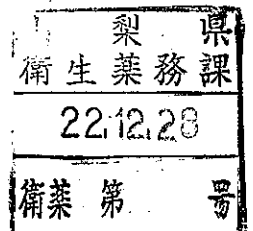 梨県
衛生薬務課
22.12.28
衛薬第 号